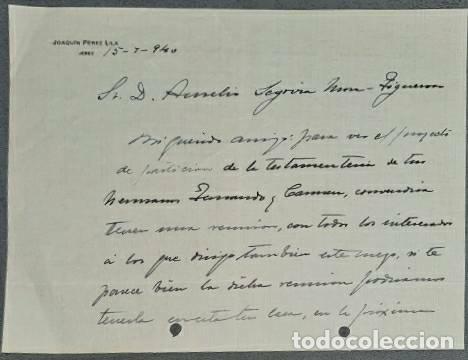 JOAQUIN PEREZ LILA
JEREZ
15-7-940
Sr. D. Aurelio Segovia Mora-Figueroa
Mi querido amigo: para ver el proyecto
de partición de la testamentaria de tus
hermanos Fernando y Carmen, convendria
tener una reunion, con todos los interesados
á los que dirijo tambien este ruego, si te
parece bien la dicha reunion podriamos
tenerla en esta tu casa, en la próxima
todocoleccion.net